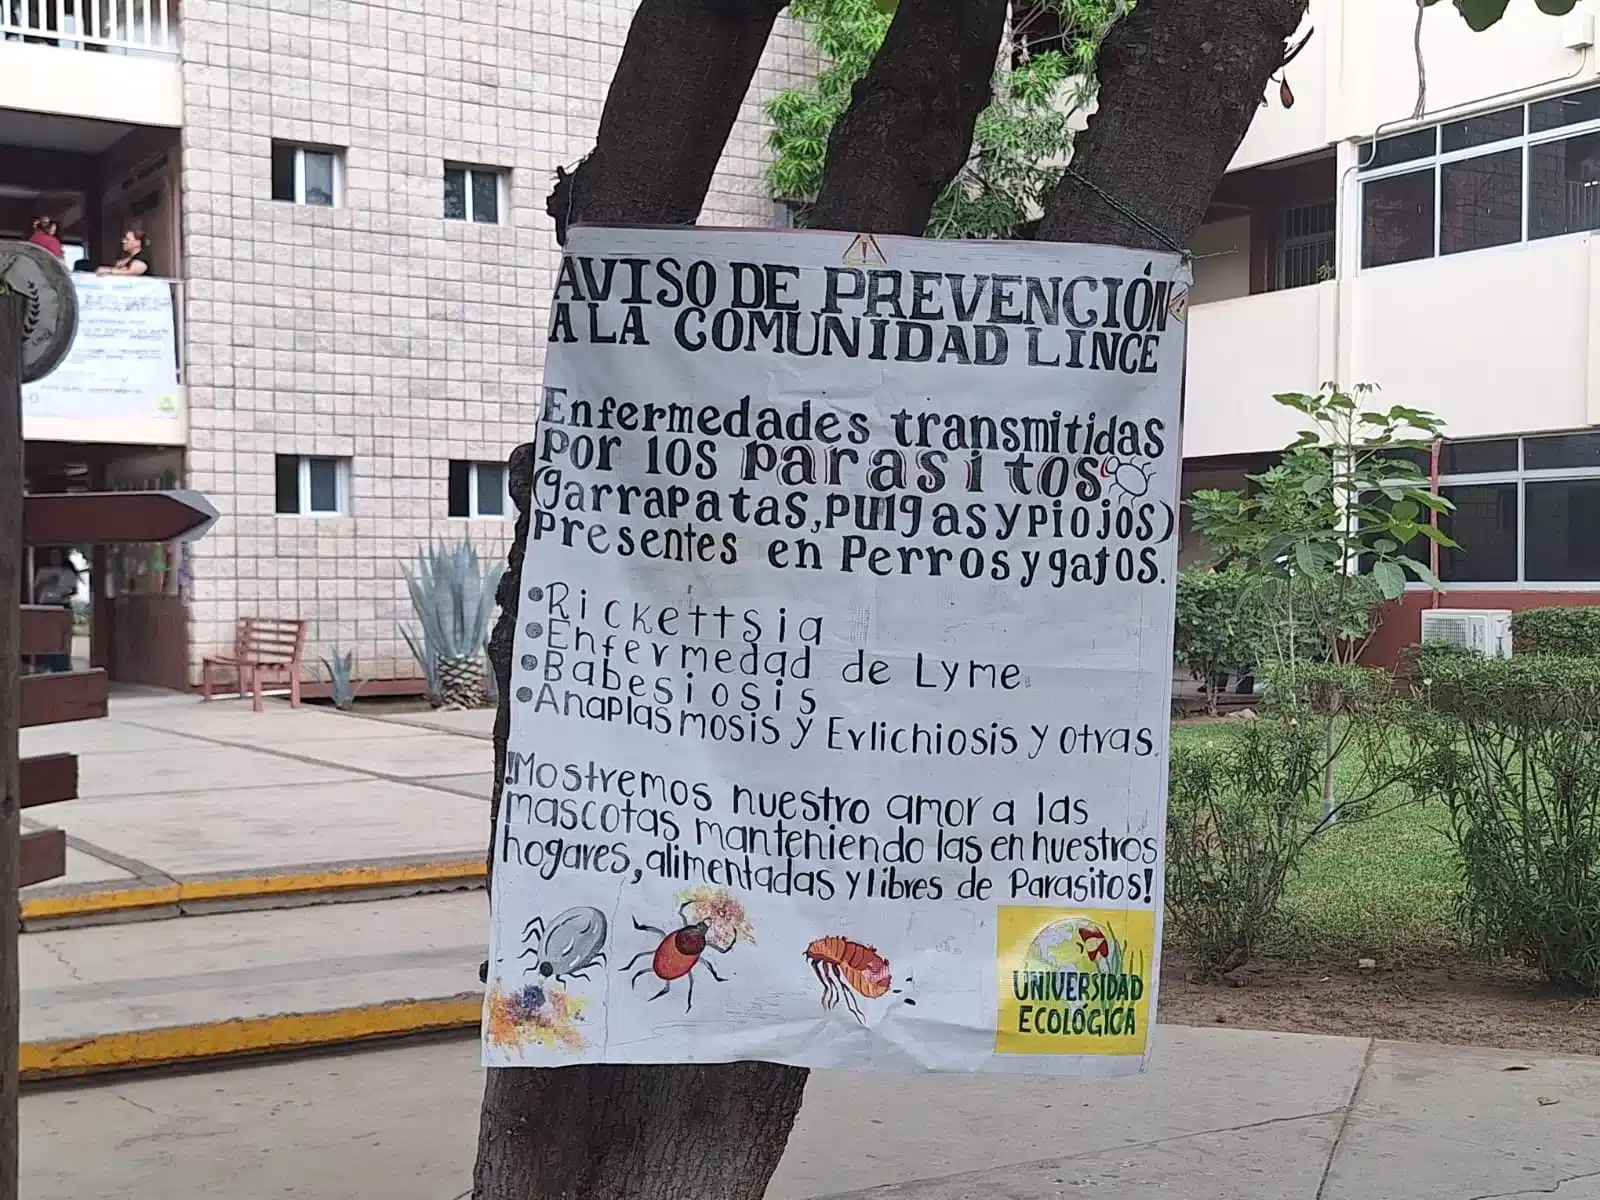 AVISO DE PREVENCIÓN
A LA COMUNIDAD LINCE
Enfermedades transmitidas
por los parasitos
(garrapatas, pulgas y piojos)
Presentes en Perros y gatos.
•Rickettsia
•Enfermedad de Lyme.
•Babesiosis
•Anaplasmosis y Erlichiosis y otras.
!Mostremos nuestro amor a las
mascotas manteniendo las en nuestros
hogares, alimentadas y libres de Parasitos!
UNIVERSIDAD
ECOLÓGICA